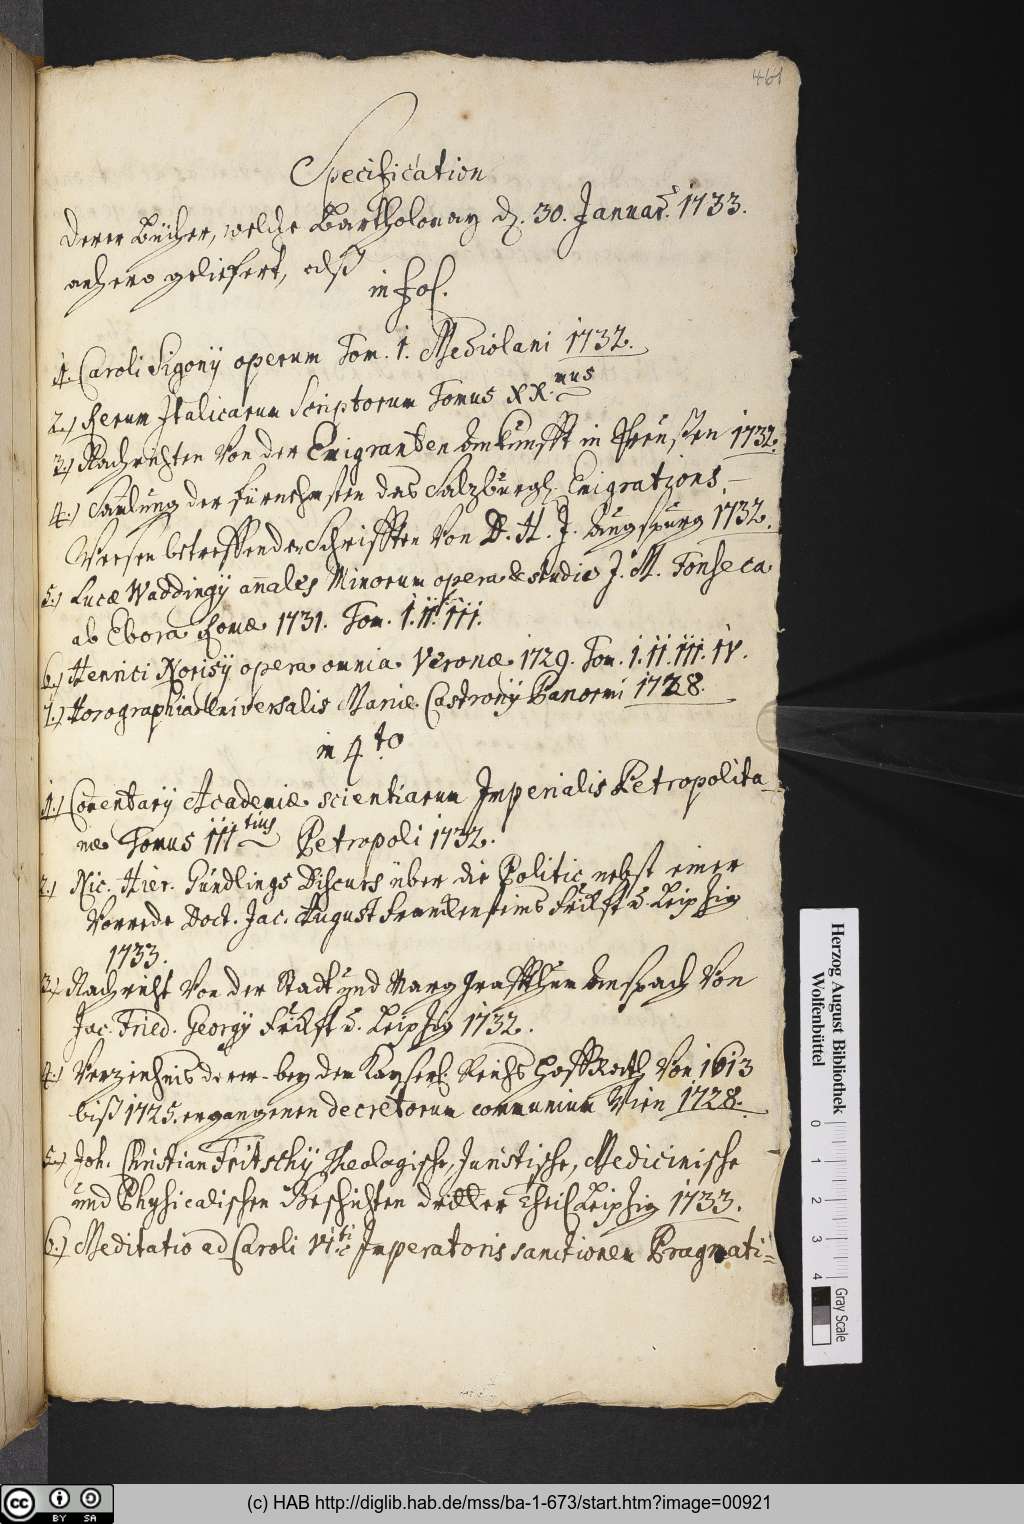 461
Specification
derer Bücher, welche Bartholomay d. 30. Januar. 1733.
anhero geliefert, alß
in fol.
1.) Caroli Sigonij operum Tom. 1. Mediolani 1732.
2.) Rerum Italicarum Scriptorum Tomus XX.mus
3.) Nachrichten Von der Emigranten Ankunfft in Preußen 1732.
4.) Samlung der fürnehmsten das Salzburgl. Emigrations-
Weesen betreffenden Schrifften Von D. H. J. Augspurg 1732.
5.) Lucæ Waddingij annales Minorum opera & studio J. M. Fonseca
ab Ebora Romæ 1731. Tom. I. II. III.
6.) Henrici Norisij opera omnia Veronæ 1729. Tom. I. II. III. IV.
7.) Horographia Universalis Mariæ Castronij Panormi 1728.
in 4.to
1.) Comentarij Academiæ scientiarum Imperialis Petropolita-
næ Tomus III tius Petropoli 1732.
2.) Nic. Hier. Gundlings Discurs über die Politic, nebst einer
Vorrede Doct. Jac. August Franckensteins Frckft u. Leipzig
1733.
3.) Nachricht Von der Stadt und Marggraffthum Anspach Von
Jac. Fried. Georgij Frckft u. Leipzig 1732.
4.) Verzeichnis derer bey dem Kayserl. Reichs HoffRath Von 1613
biß 1725. ergangenen decretorum communium Wien 1728.
5.) Joh. Christian Fritschij Theologische, Juristische, Medicinische
und Physicalischen Geschichten dritter Theil Leipzig 1733.
6.) Meditatio ad Caroli VI ti Imperatoris sanctionem Pragmati-
Herzog August Bibliothek
Wolfenbüttel
0 1 2 3 4
Gray Scale
(c) HAB http://diglib.hab.de/mss/ba-1-673/start.htm?image=00921
cc BY SA